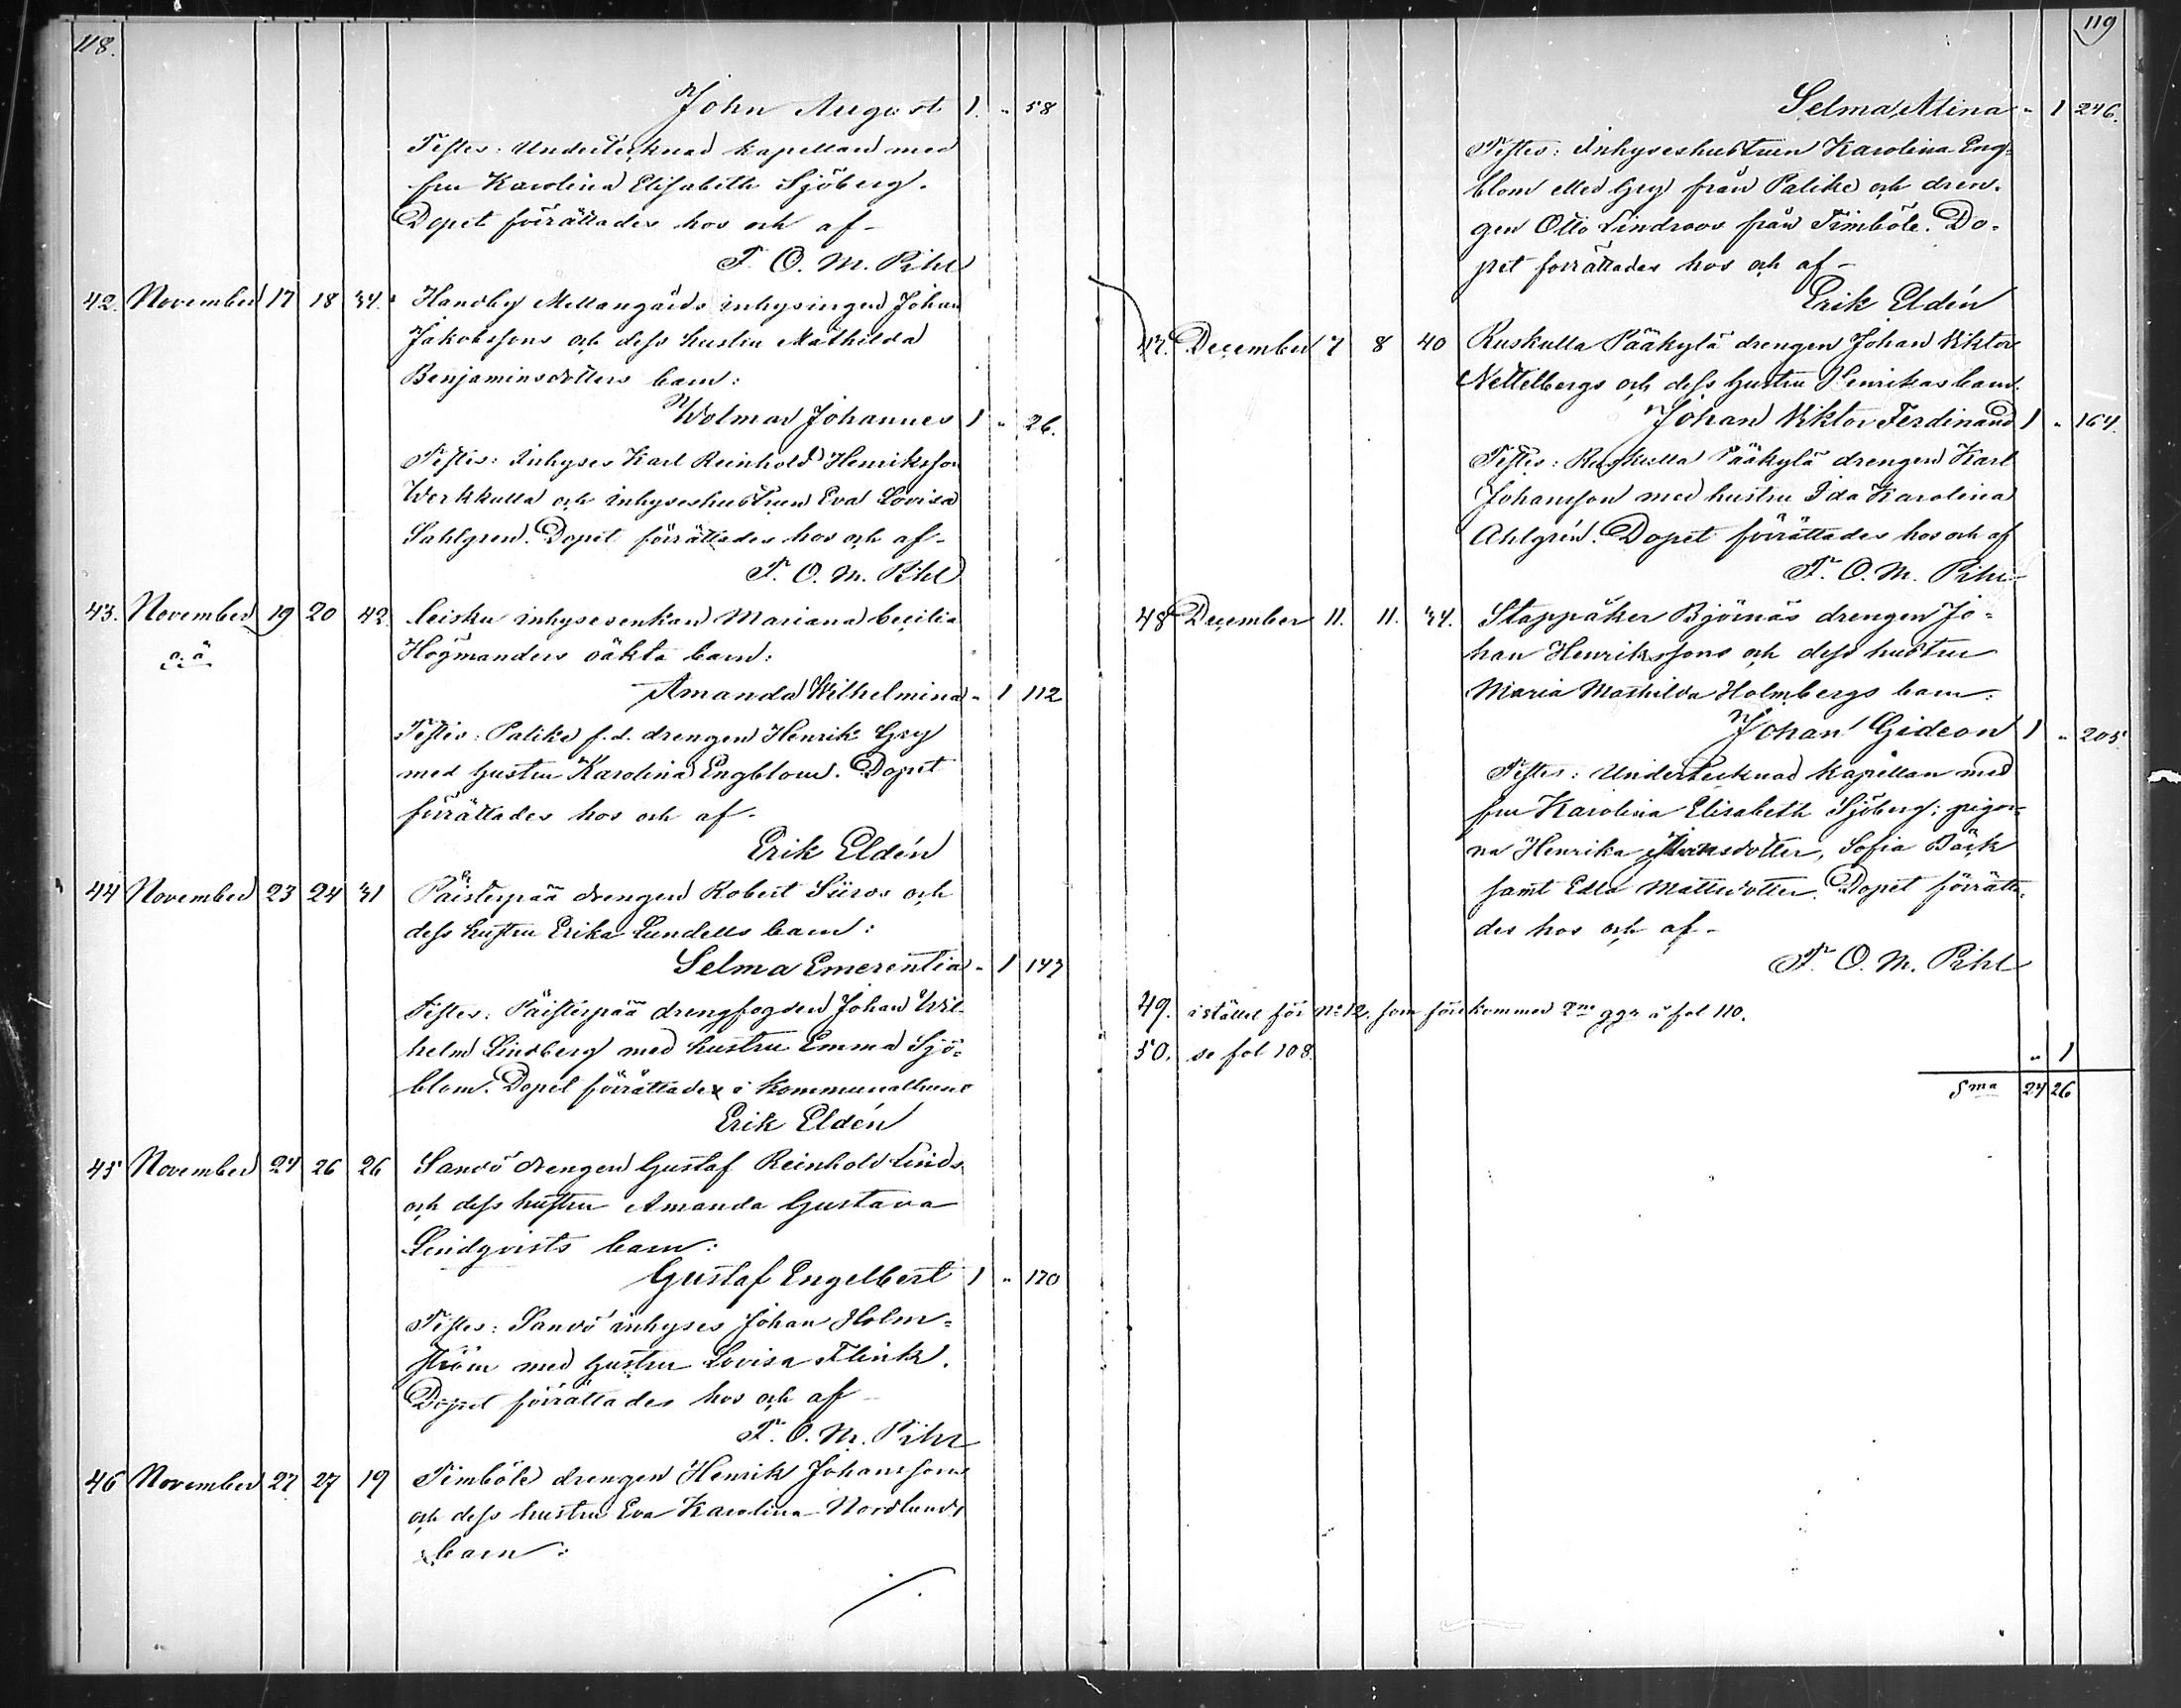 118.
John August 1. " 58
Testes: Undertecknad kapellan med
fru Karolina Elisabeth Sjöberg.
Dopet förrättades hos och af –
F. O. M. Pihl
42. November 17 18 34. Handby Mellangårds inhysingen Johan
Jakobssons och dess hustru Mathilda
Benjaminsdotters barn:
Wolmar Johannes 1 " 26.
Testes: Inhyses Karl Reinhold Henriksson
Werkkulla och inhyseshustrun Eva Lovisa
Sahlgren. Dopet förrättades hos och af –
F. O. M. Pihl
43. November 19 20 42. Leisku inhysesenkan Mariana Cecilia
o. ä. Högmanders oäkta barn:
Amanda Wilhelmina " 1 112
Testes: Palike f.d. drengen Henrik Grg
med hustru Karolina Engblom. Dopet
förrättades hos och af –
Erik Eldén
44 November 23 24 31 Päisterpää drengen Robert Siiros och
dess hustru Erika Lundells barn:
Selma Emerentia " 1 147
Testes: Päisterpää drengfogden Johan Wil-
helm Lindberg med hustru Emma Sjö-
blom. Dopet förrättades i kommunalhuset
Erik Eldén
45 November 24 26 26 Sandö drengen Gustaf Reinhold Linds
och dess hustru Amanda Gustava
Lindqvists barn:
Gustaf Engelbert 1 " 170
Testes: Sandö inhyses Johan Holm-
ström med hustru Lovisa Flink.
Dopet förrättades hos och af –
F. O. M. Pihl
46 November 27 27 19 Fimböle drengen Henrik Johanssons
och dess hustru Eva Karolina Nordlunds
barn:
119
Selma Alina " 1 246.
Testes: Inhyseshustrun Karolina Eng-
blom från Palike och dren-
gen Otto Lindroos från Fimböle. Do-
pet förrättades hos och af –
Erik Eldén
47. December 7 8 40 Ruskulla Pääkylä drengen Johan Viktor
Nettelbergs och dess hustru Henrikas barn.
Johan Viktor Ferdinand 1 " 164.
Testes: Ruskulla Pääkylä drengen Karl
Johansson med hustru Ida Karolina
Ahlgrén. Dopet förrättades hos och af
F. O. M. Pihl
48 December 11. 11. 34. Stappåker Björnäs drengen Jo-
han Henrikssons och dess hustru
Maria Mathilda Holmbergs barn:
Johan Gideon 1 " 205
Testes: Undertecknad kapellan med
fru Karolina Elisabeth Sjöberg; pigor-
na Henrika Sofia Bäck
samt Edla Mattsdotter. Dopet förrätta-
des hos och af –
F. O. M. Pihl
49. i stället för No 12. som förekommer 2ne ggr å fol 110.
50. se fol 108. " 1
Sma 24 26